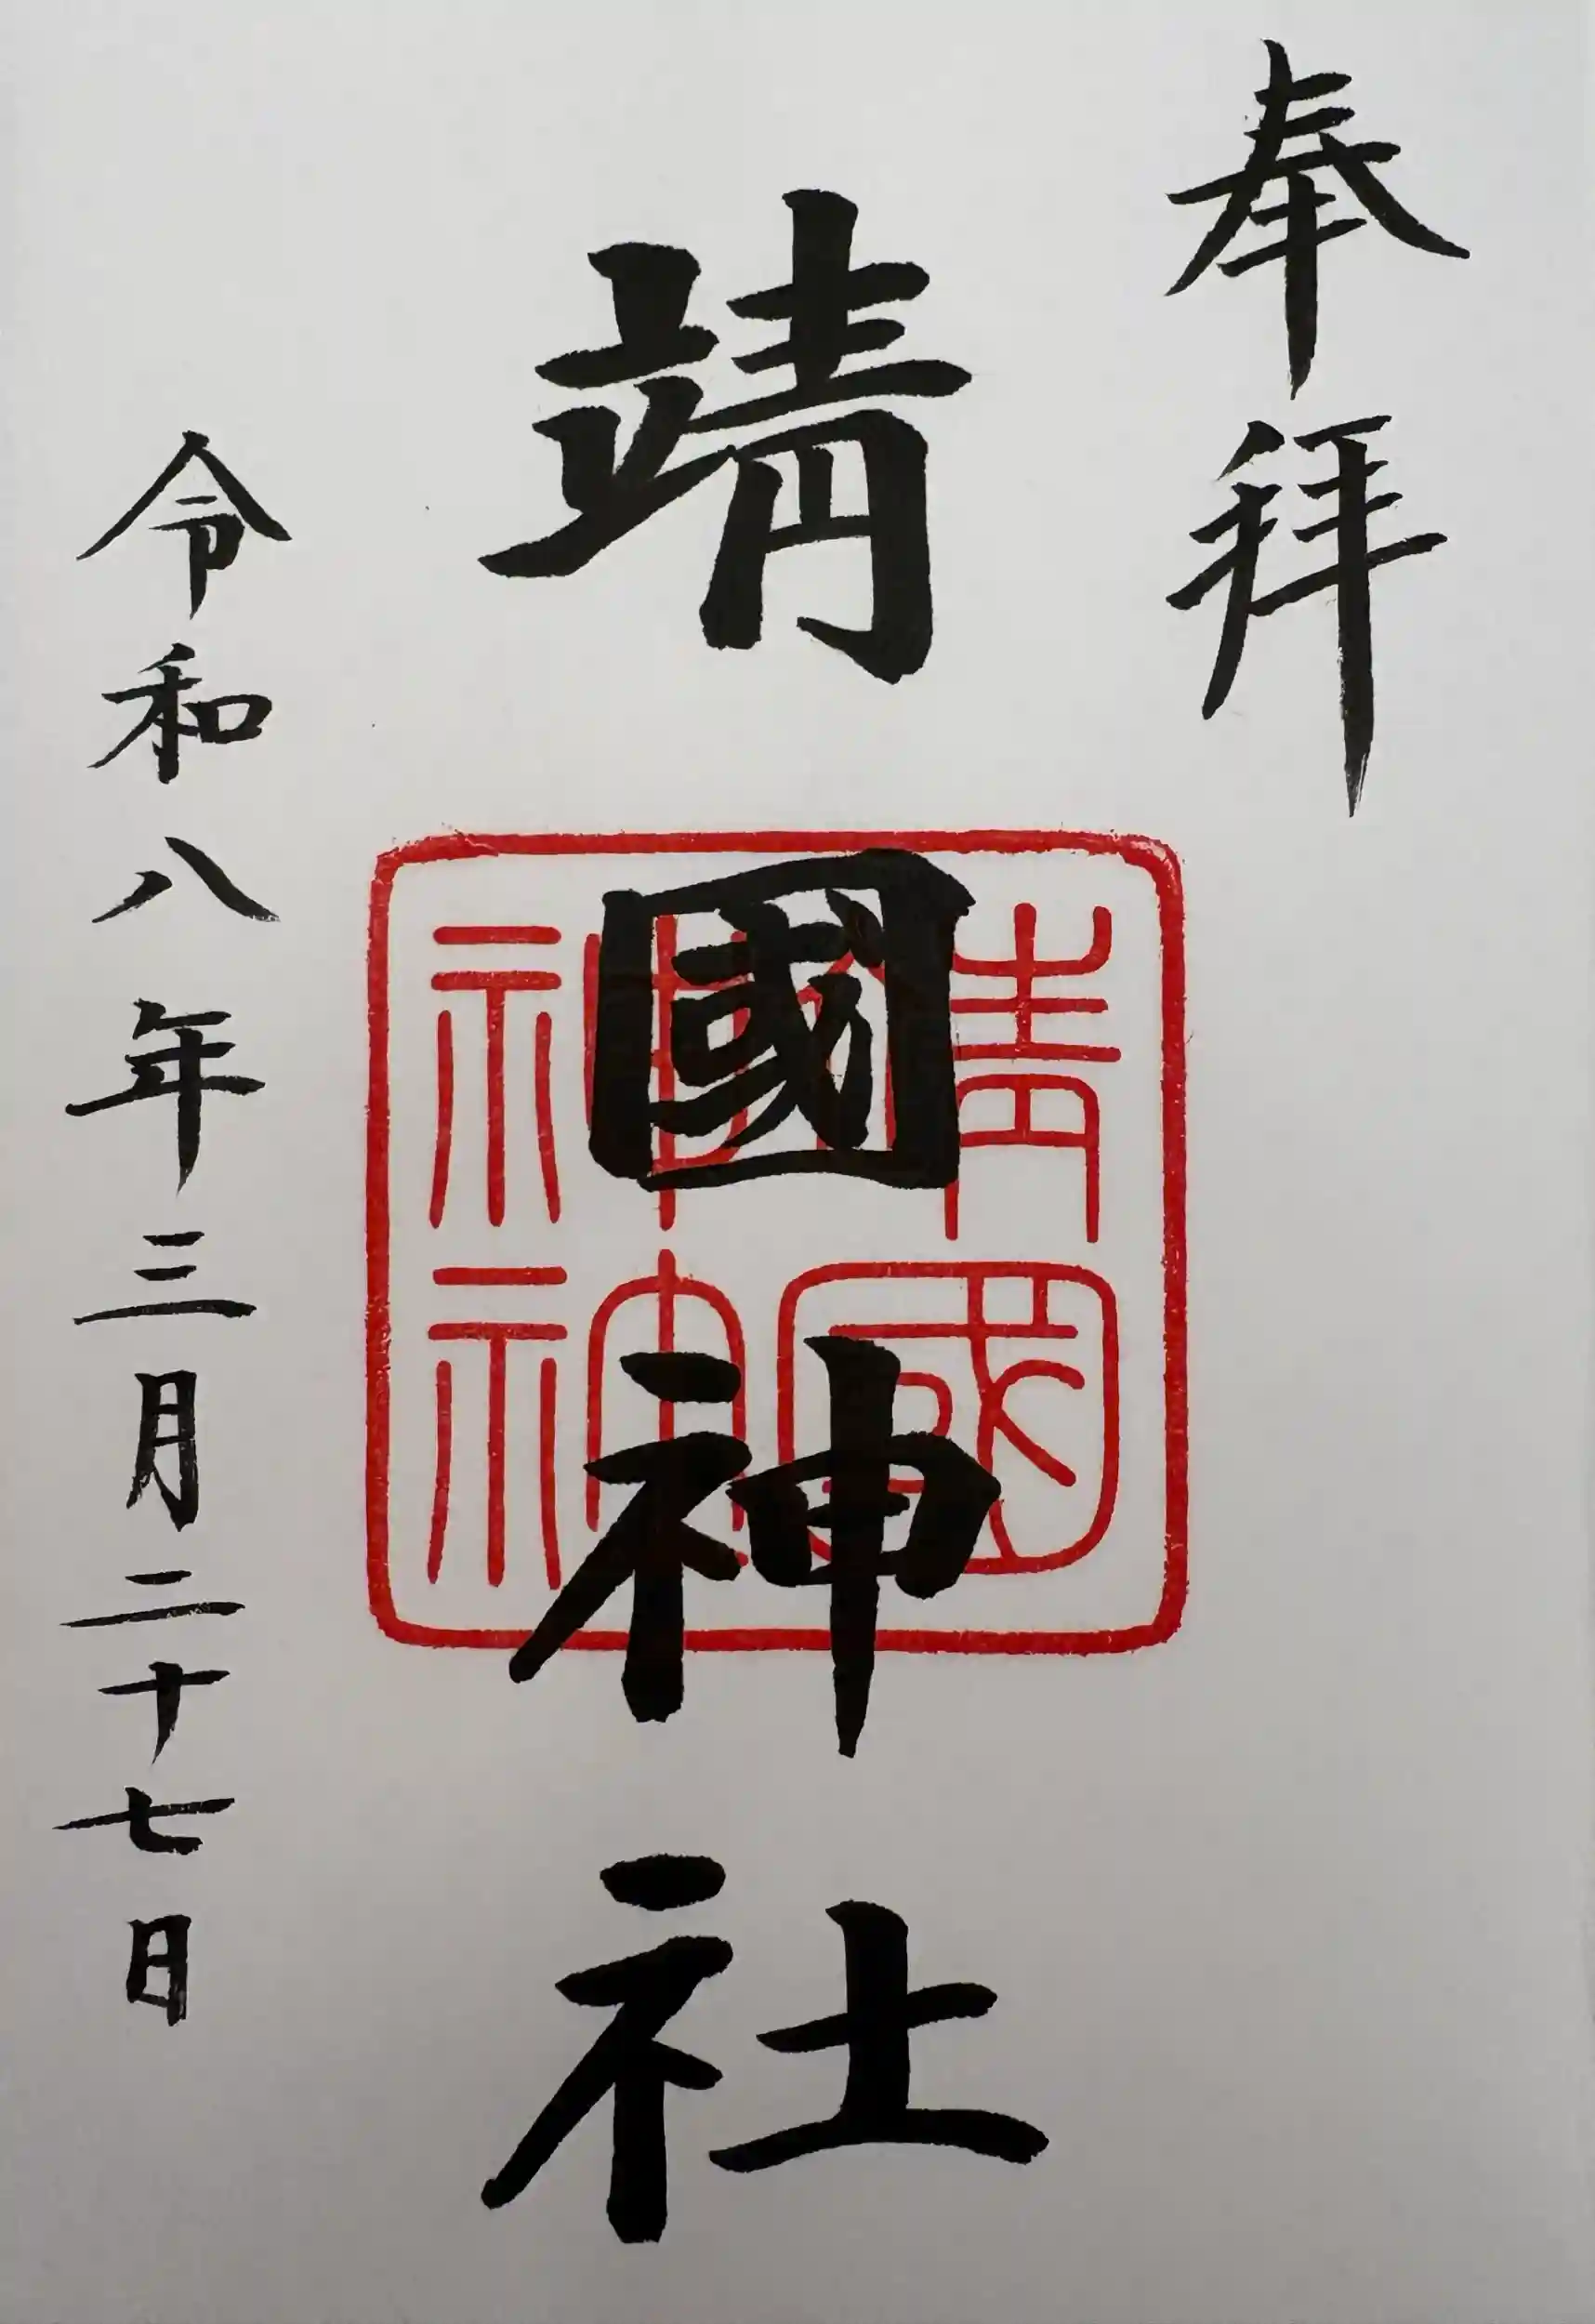 奉拝
靖國神社
靖國
神
令和八年三月二十七日